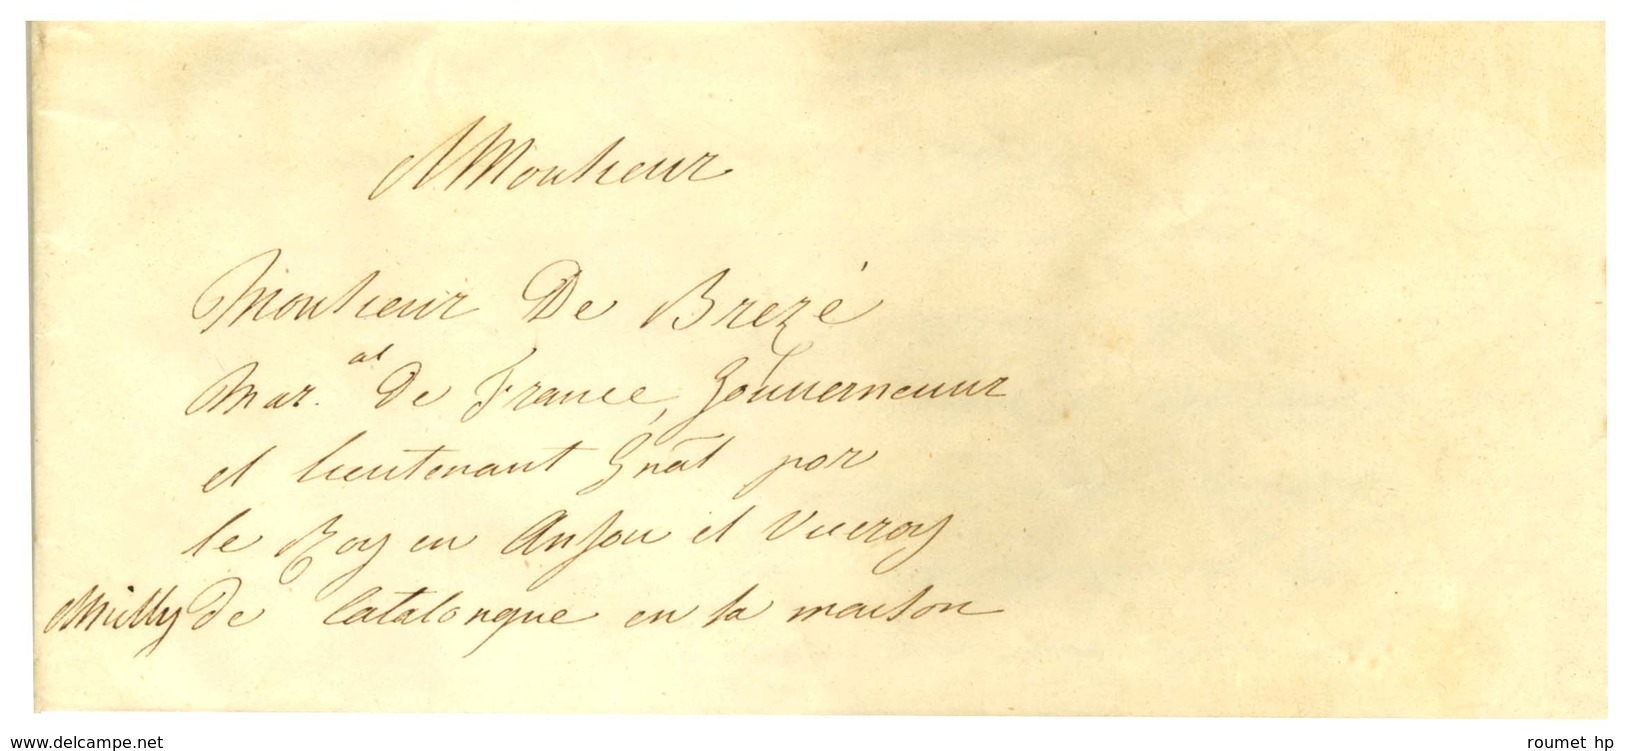 A Monsieur
Monsieur De Brezé
Mar.al De France, Gouverneuur
et lieutenant Gnāl por
le Roy en Anjou et Viceroy
Milly De Catalongue en sa maison
www.delcampe.net
roumet hp